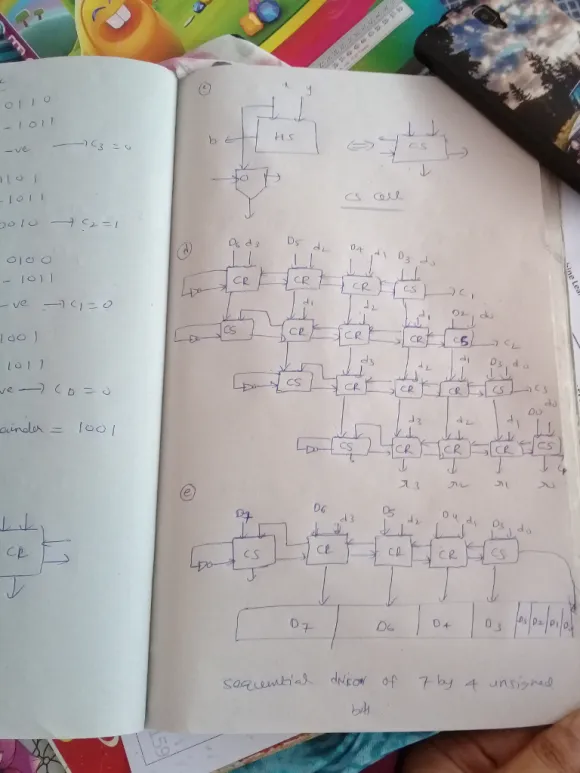 0110
- 1011
-ve → C3 = 0
1101
- 1011
0010 → C2 = 1
0100
- 1011
-ve → C1 = 0
1001
1011
ve → C0 = 0
ainder = 1001
CR
(c)
x y
b
HS
CS
CS Cell
(d)
D6 d3 D5 d2 D4 d1 D3 d0
CR CR CR CS
C1
d1 d2 d1 D2 d0
CS CR CR CR CS
C2
d3 d2 d1 D1 d0
CS CR CR CR CS
C3
d3 d2 d1 D0 d0
CS CR CR CR CS
r3 r2 r1 r0
(e)
D7 D6 d3 D5 d2 D4 d1 D3 d0
CS CR CR CR CS
D7 D6 D4 D3 D3 D2 D1 D0
sequential divisor of 7 by 4 unsigned
bit